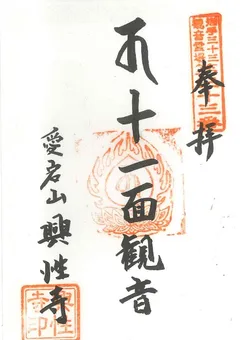 奉拝
十一面観音
愛宕山興性寺